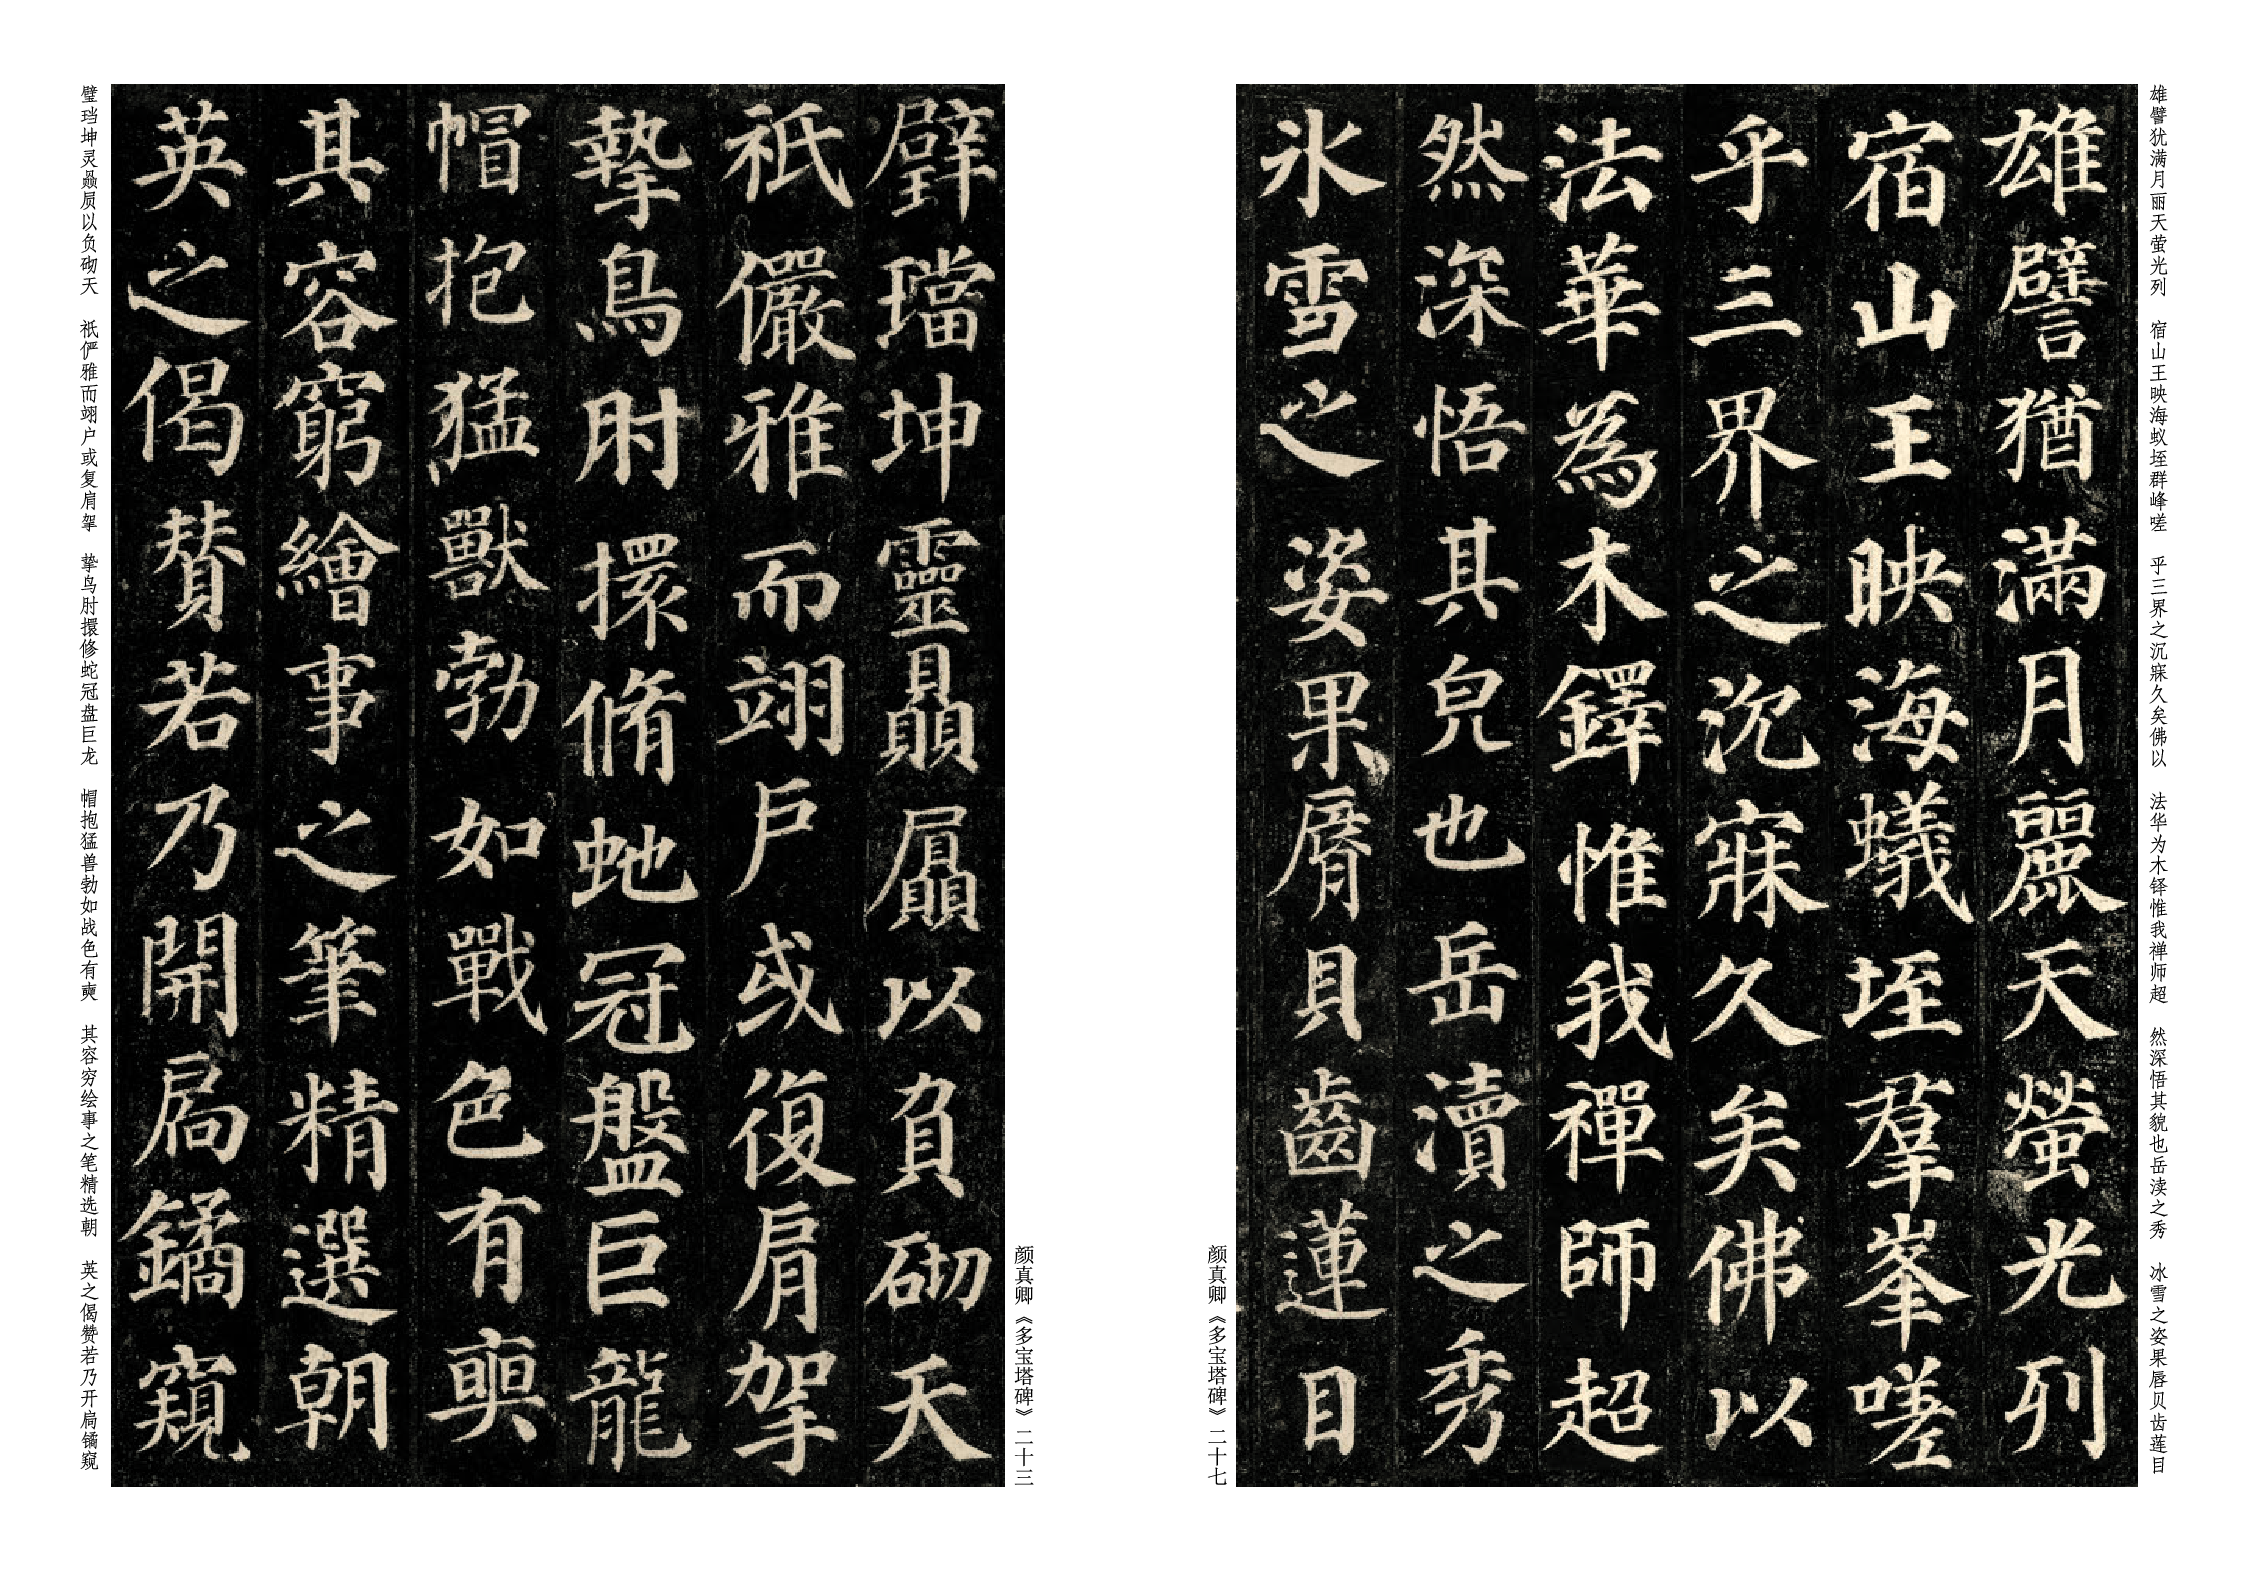 雄譬犹满月丽天萤光列　宿山王映海蚁垤群峰嗟　乎三界之沉寐久矣佛以　法华为木铎惟我禅师超　然深悟其貌也岳渎之秀　冰雪之姿果唇贝齿莲目
雄譬猶滿月麗天螢光列
宿山王映海蟻垤羣峯嗟
乎三界之沉寐久矣佛以
法華為木鐸惟我禪師超
然深悟其皃也岳瀆之秀
氷雪之姿果脣貝齒蓮目
颜真卿《多宝塔碑》二十七
颜真卿《多宝塔碑》二十三
璧璫坤靈贔屭以負砌天
祇儼雅而翊戶或復肩拏
摯鳥肘擐脩虵冠盤巨龍
帽抱猛獸勃如戰色有奭
其容窮繪事之筆精選朝
英之偈贊若乃開扃鐍窺
璧珰坤灵赑屃以负砌天　祇俨雅而翊户或复肩拏　挚鸟肘擐修蛇冠盘巨龙　帽抱猛兽勃如战色有奭　其容穷绘事之笔精选朝　英之偈赞若乃开扃鐍窥